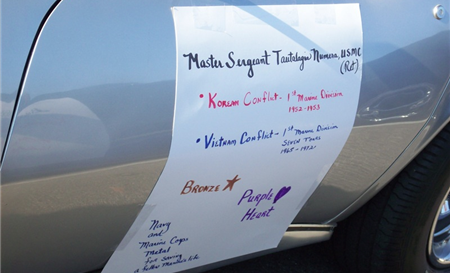 Master Sergeant Tautalagia Numera, USMC
(Ret)
• Korean Conflict - 1st Marine Division
1952-1953
• Vietnam Conflict - 1st Marine Division
Seven Tours
1965-1971
Bronze
Purple
Heart
Navy
and
Marine Corps
Medal
For Saving
a fellow Marines life